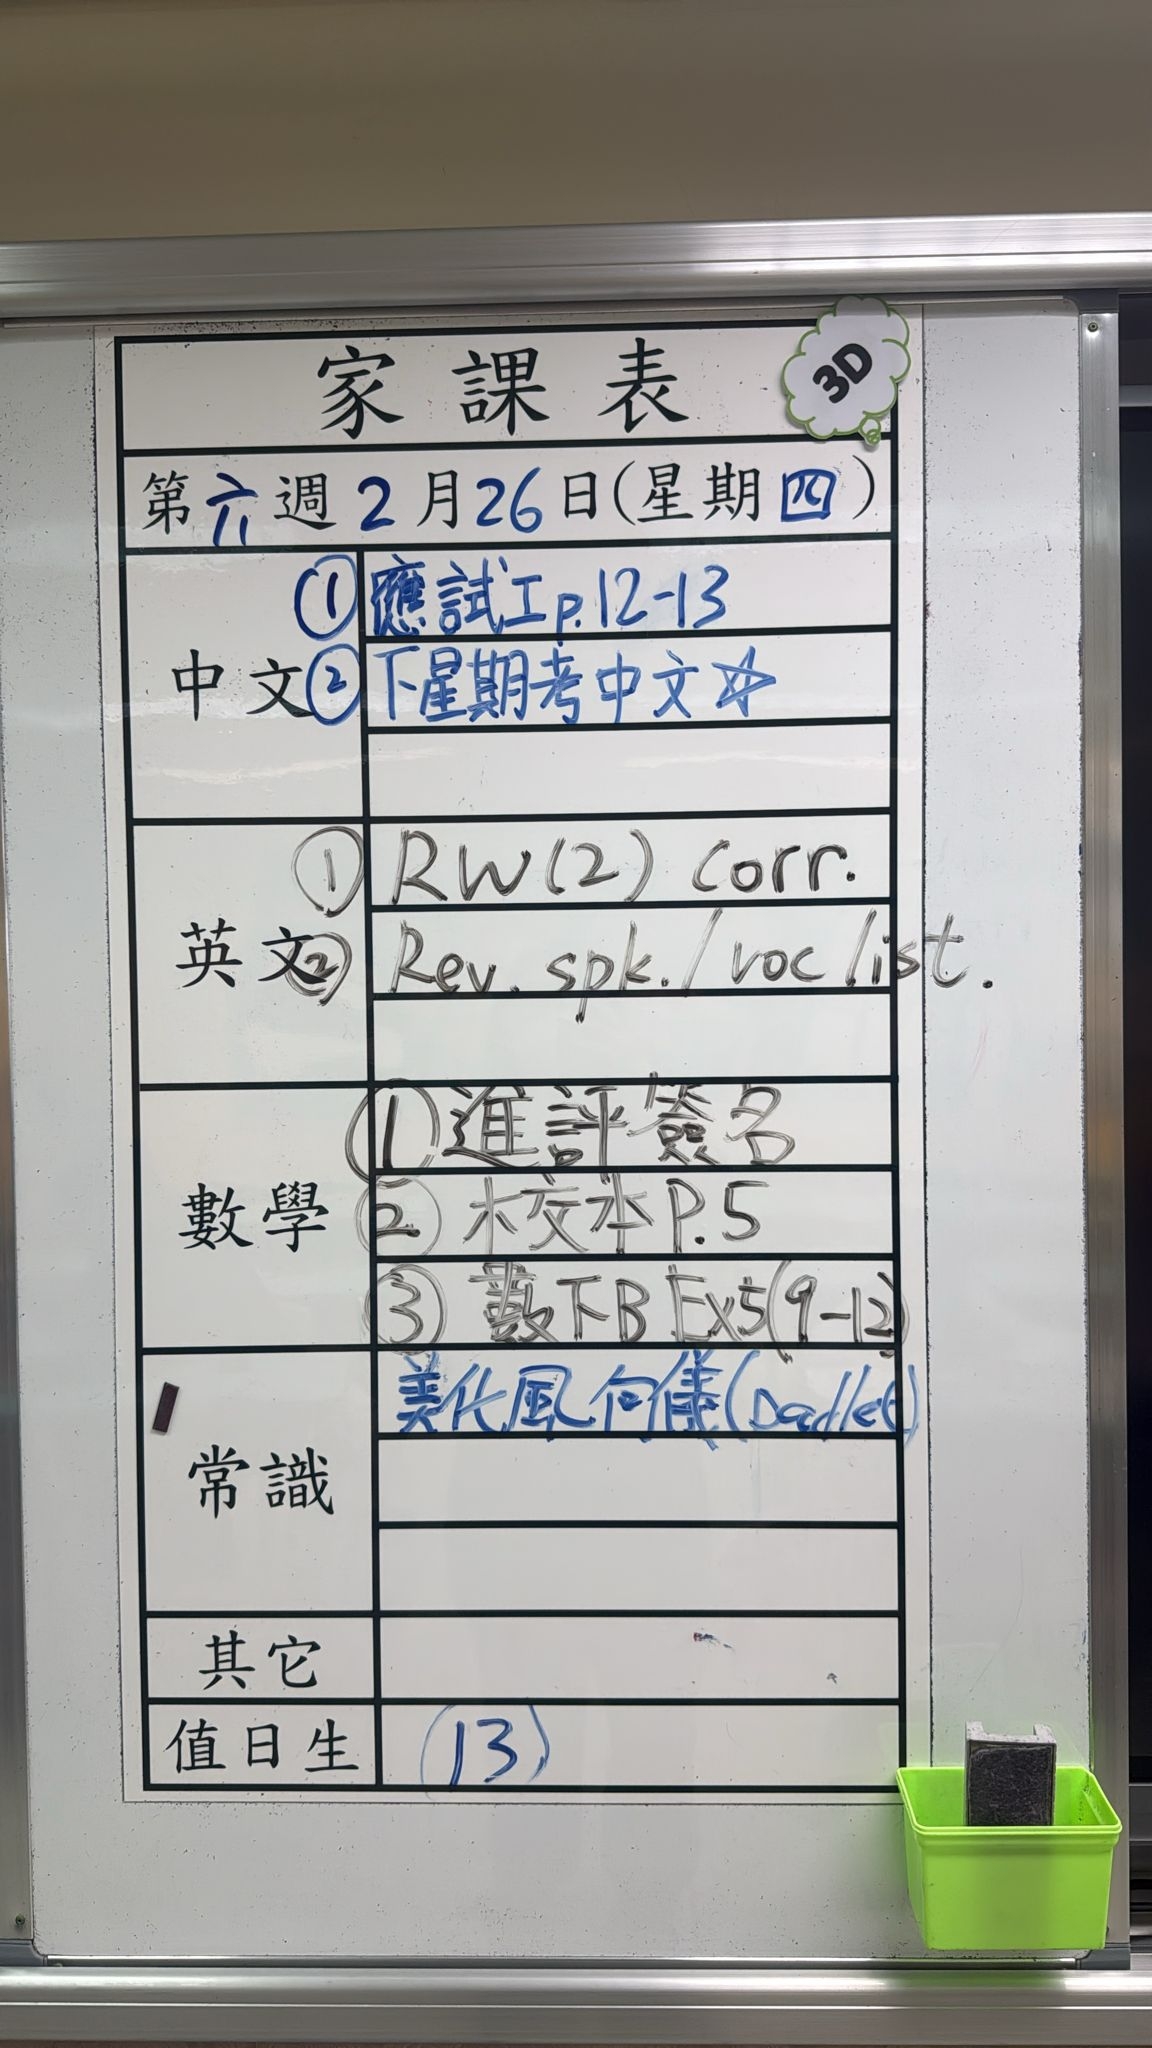 家課表
3D
第六週2月26日(星期四)
中文
① 應試工p.12-13
② 下星期考中文☆
英文
① RW(2) corr.
② Rev. spk./voc list.
數學
① 進評簽名
② 校本P.5
③ 數下B Ex5(9-12)
常識
美化風向儀(Padlet)
其它
值日生
(13)